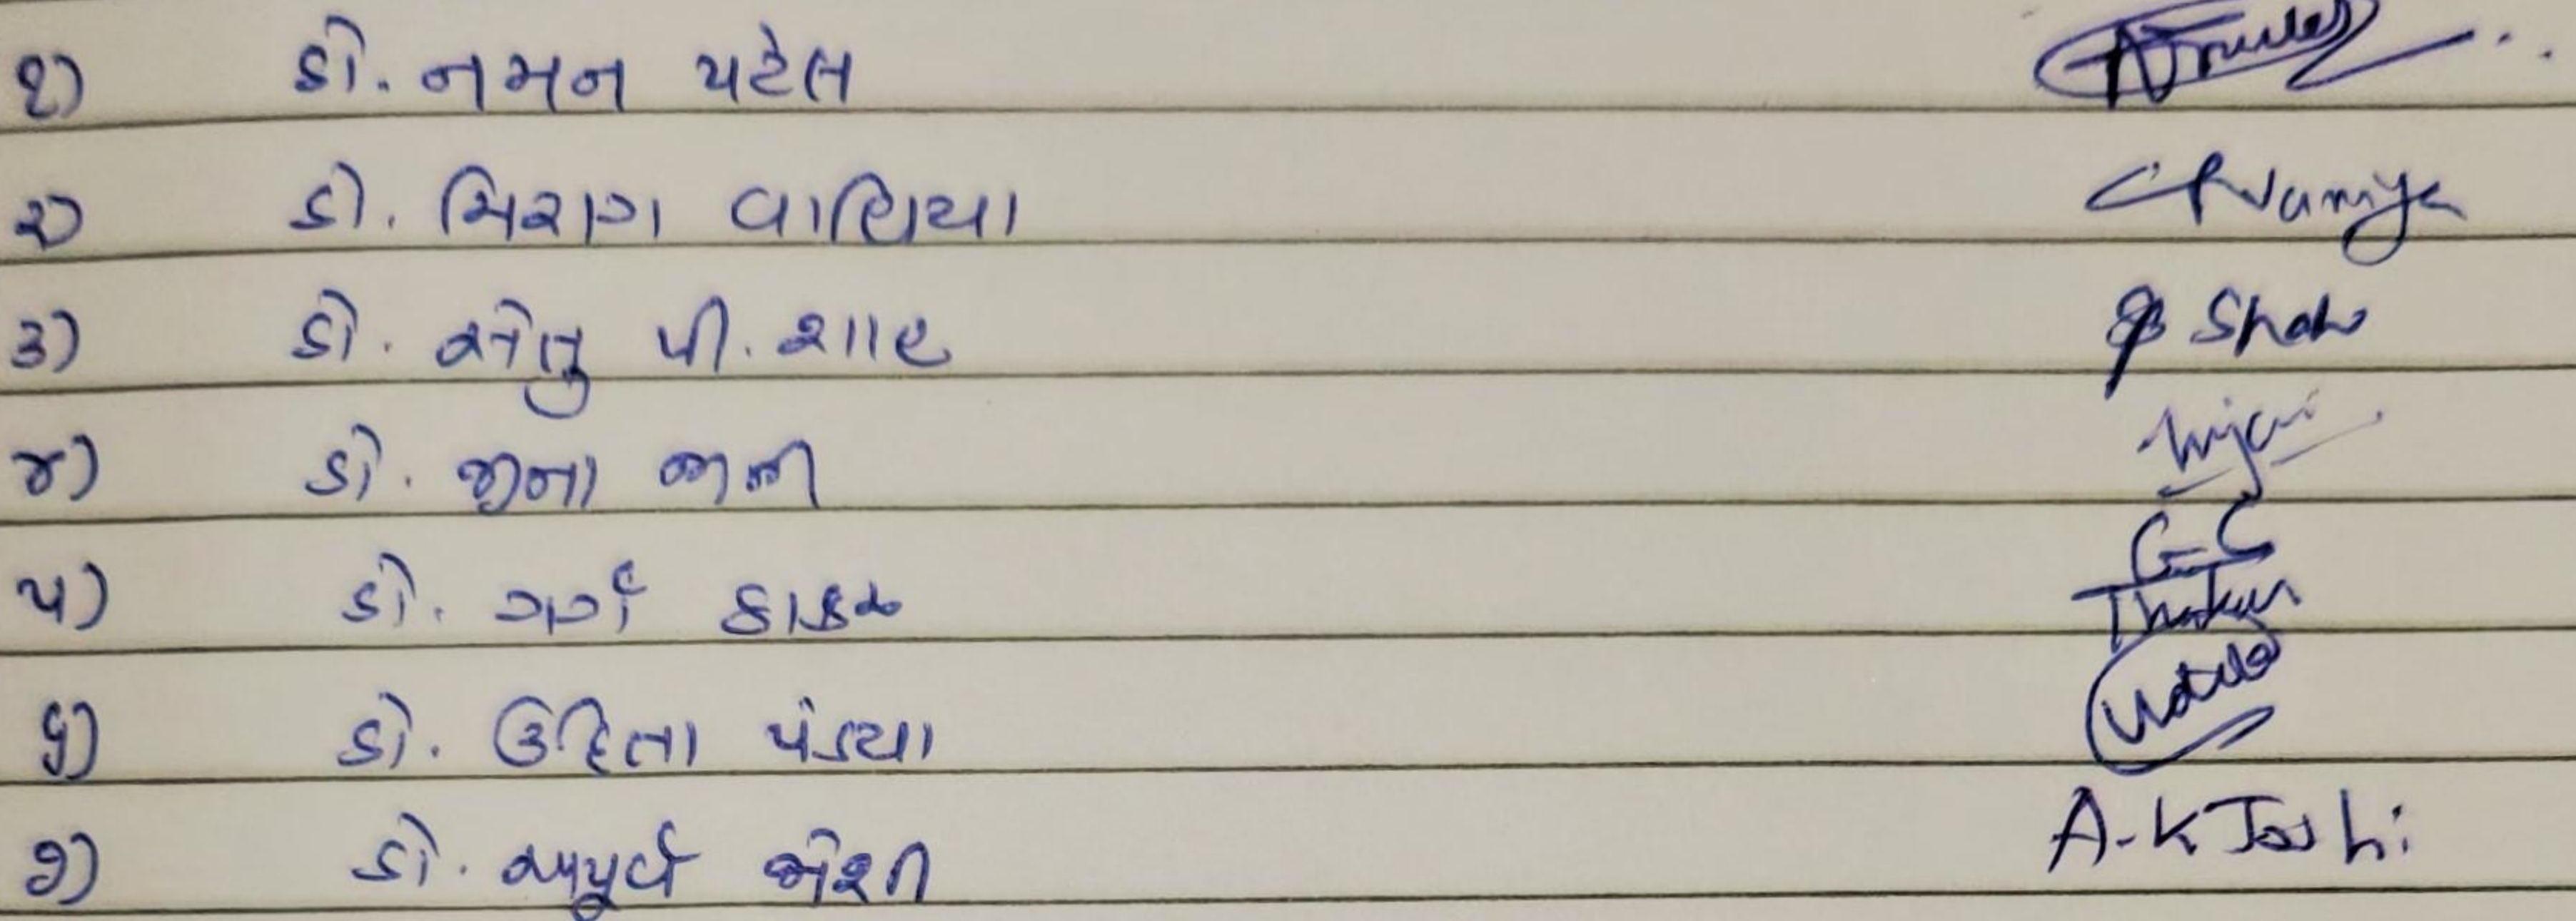 ૧) ડો. નમન પટેલ
૨) ડો. ચિરાગ વાણિયા CPVaniya
૩) ડો. સેતુ પી. શાહ Shah
૪) ડો. જીના જાની
૫) ડો. ગર્ગ ઠાકર G C Thakar
૬) ડો. ઉદિતા પંડ્યા
૭) ડો. અપૂર્વ જોશી A-K Joshi